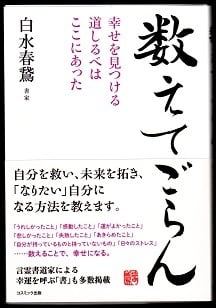 数えてごらん
幸せを見つける
道しるべは
ここにあった
白水春鵞
書家
自分を救い、未来を拓き、
「なりたい」自分に
なる方法を教えます。
「うれしかったこと」「感動したこと」「運がよかったこと」
「悲しかったこと」「失敗したこと」「あきらめたこと」
「自分が持っているものと持っていないもの」「日々のストレス」
……数えることで、幸せになる。
言霊書道家による
幸運を呼ぶ「書」も多数掲載
コスミック出版